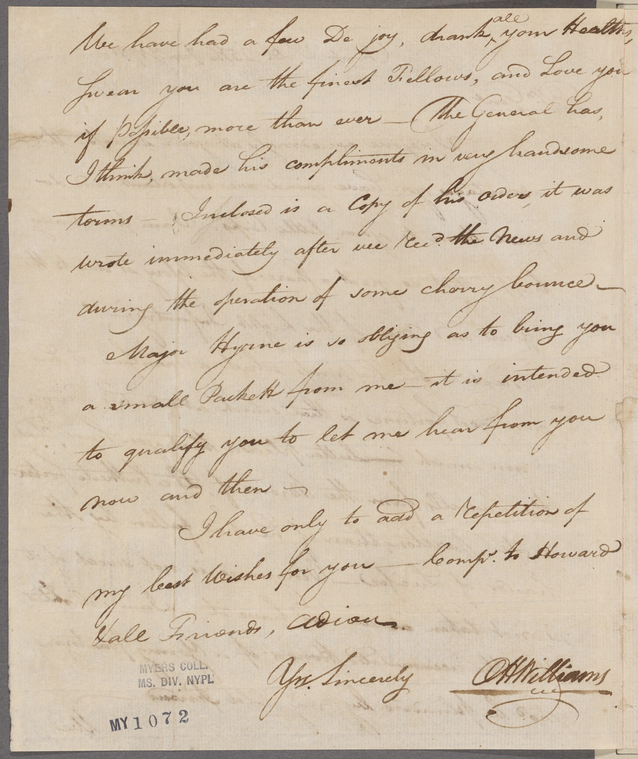 We have had a few De joy, drank all your Healths,
Swear you are the finest Fellows, and Love you
if Possible, more than ever — The General has,
I think, made his compliments in very handsome
terms — Inclosed is a Copy of his order it was
wrote immediately after we Rec.d the News and
during the operation of some cherry bounce —
Major Hyrne is so obliging as to bring you
a small Packett from me — it is intended
to qualify you to let me hear from you
now and then —
I have only to add a Repetition of
my best Wishes for you — Compts. to Howard
& all Friends, adieu.
Yrs. Sincerely OHWilliams
MYERS COLL.
MS. DIV. NYPL
MY 1072